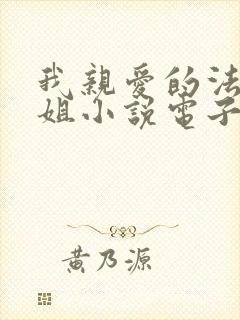 我親愛的法
姐小説電子
黃乃源